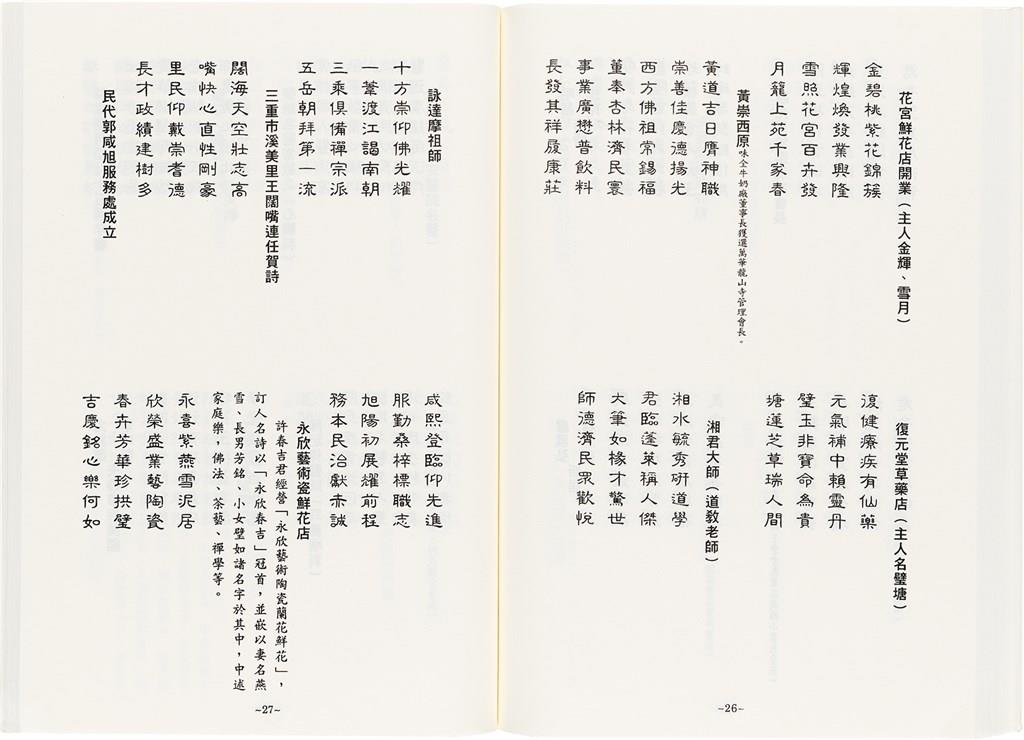 花宮鮮花店開業（主人金輝、雪月）
金碧桃紫花錦簇
輝煌煥發業興隆
雪照花宮百卉發
月籠上苑千家春
黃崇西原味全牛奶廠董事長獲選萬華龍山寺管理會長。
黃道吉日膺神職
崇善佳慶德揚光
西方佛祖常錫福
董奉杏林濟民寰
事業廣懋普飲料
長發其祥履康莊
復元堂草藥店（主人名璧塘）
復健療疾有仙藥
元氣補中賴靈丹
璧玉非寶命為貴
塘蓮芝草瑞人間
湘君大師（道教老師）
湘水毓秀研道學
君臨蓬萊稱人傑
大筆如椽才驚世
師德濟民眾歡悅
~26~
詠達摩祖師
十方崇仰佛光耀
一葦渡江謁南朝
三乘俱備禪宗派
五岳朝拜第一流
三重市溪美里王闊嘴連任賀詩
闊海天空壯志高
嘴快心直性剛豪
里民仰戴崇耆德
長才政績建樹多
民代郭咸旭服務處成立
咸熙登臨仰先進
服勤桑梓標職志
旭陽初展耀前程
務本民治獻赤誠
永欣藝術瓷鮮花店
許春吉君經營「永欣藝術陶瓷蘭花鮮花」，
訂人名詩以「永欣春吉」冠首，並嵌以妻名燕
雪、長男芳銘、小女璧如諸名字於其中，中述
家庭樂，佛法、茶藝、禪學等。
永喜紫燕雪泥居
欣榮盛業藝陶瓷
春卉芳華珍拱璧
吉慶銘心樂何如
~27~